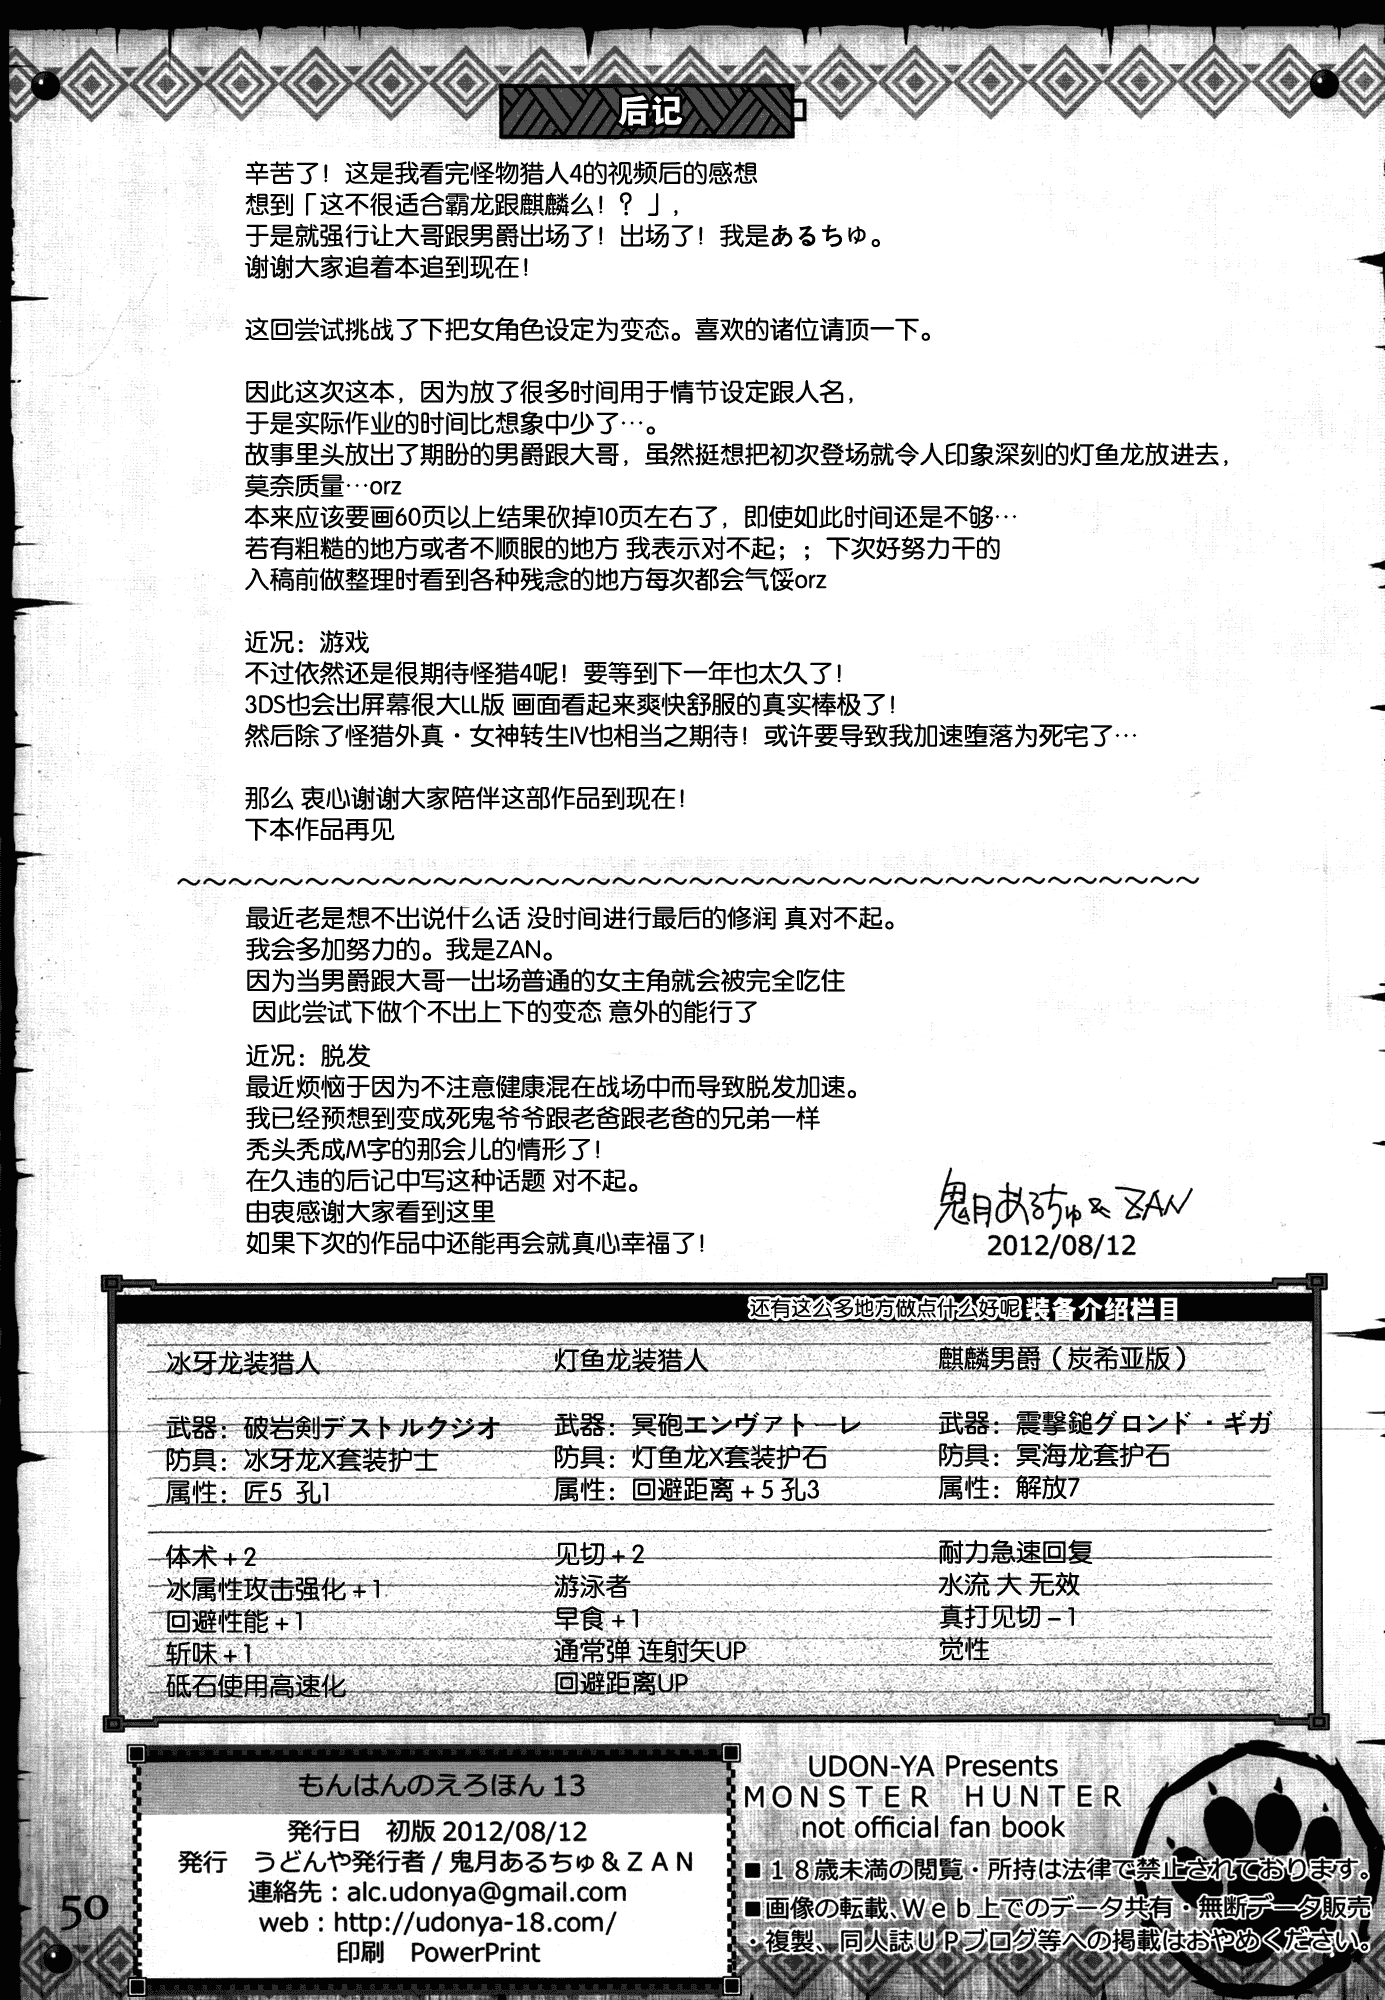 后记
辛苦了！这是我看完怪物猎人4的视频后的感想
想到「这不很适合霸龙跟麒麟么！？」，
于是就强行让大哥跟男爵出场了！出场了！我是あるちゅ。
谢谢大家追着本追到现在！
这回尝试挑战了下把女角色设定为变态。喜欢的诸位请顶一下。
因此这次这本，因为放了很多时间用于情节设定跟人名，
于是实际作业的时间比想象中少了…。
故事里头放出了期盼的男爵跟大哥，虽然挺想把初次登场就令人印象深刻的灯鱼龙放进去，
莫奈质量…orz
本来应该要画60页以上结果砍掉10页左右了，即使如此时间还是不够…
若有粗糙的地方或者不顺眼的地方 我表示对不起；；下次好努力干的
入稿前做整理时看到各种残念的地方每次都会气馁orz
近况：游戏
不过依然还是很期待怪猎4呢！要等到下一年也太久了！
3DS也会出屏幕很大LL版 画面看起来爽快舒服的真实棒极了！
然后除了怪猎外真・女神转生IV也相当之期待！或许要导致我加速堕落为死宅了…
那么 衷心谢谢大家陪伴这部作品到现在！
下本作品再见
～～～～～～～～～～～～～～～～～～～～～～～～～～～～～～～～～～～～～～～～
最近老是想不出说什么话 没时间进行最后的修润 真对不起。
我会多加努力的。我是ZAN。
因为当男爵跟大哥一出场普通的女主角就会被完全吃住
因此尝试下做个不出上下的变态 意外的能行了
近况：脱发
最近烦恼于因为不注意健康混在战场中而导致脱发加速。
我已经预想到变成死鬼爷爷跟老爸跟老爸的兄弟一样
秃头秃成M字的那会儿的情形了！
在久违的后记中写这种话题 对不起。
由衷感谢大家看到这里
如果下次的作品中还能再会就真心幸福了！
鬼月あるちゅ & ZAN
2012/08/12
还有这么多地方做点什么好呢 装备介绍栏目
冰牙龙装猎人
武器：破岩剣デストルクジオ
防具：冰牙龙X套装护士
属性：匠5 孔1
体术+2
冰属性攻击强化+1
回避性能+1
斩味+1
砥石使用高速化
灯鱼龙装猎人
武器：冥砲エンヴァトーレ
防具：灯鱼龙X套装护石
属性：回避距离+5 孔3
见切+2
游泳者
早食+1
通常弹 连射矢UP
回避距离UP
麒麟男爵（炭希亚版）
武器：震撃鎚グロンド・ギガ
防具：冥海龙套护石
属性：解放7
耐力急速回复
水流 大 无效
真打见切-1
觉性
もんはんのえろほん13
発行日　初版 2012/08/12
発行　うどんや発行者/鬼月あるちゅ&ZAN
連絡先：alc.udonya@gmail.com
web：http://udonya-18.com/
印刷　PowerPrint
UDON-YA Presents
MONSTER HUNTER
not official fan book
■１８歳未満の閲覧・所持は法律で禁止されております。
■画像の転載、Ｗｅｂ上でのデータ共有・無断データ販売
・複製、同人誌ＵＰブログ等への掲載はおやめください。
50